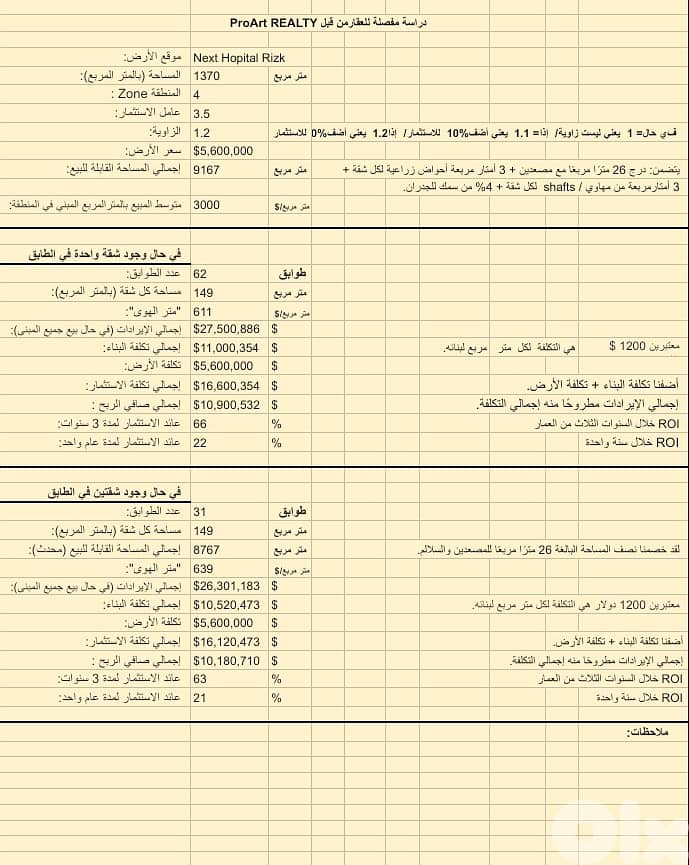 دراسة مفصلة للعقارمن قبل ProArt REALTY
موقع الأرض: Next Hopital Rizk
المساحة (بالمتر المربع): 1370 متر مربع
المنطقة Zone : 4
عامل الاستثمار: 3.5
الزاوية: 1.2 في حال= 1 يعني ليست زاوية/ إذا= 1.1 يعني أضف%10 للاستثمار/ إذا1.2 يعني أضف%0 للاستثمار
سعر الأرض: $5,600,000
إجمالي المساحة القابلة للبيع: 9167 متر مربع يتضمن: درج 26 مترًا مربعًا مع مصعدين + 3 أمتار مربعة أحواض زراعية لكل شقة +
3 أمتارمربعة من مهاوي / shafts لكل شقة + 4% من سمك للجدران.
متوسط المبيع بالمترالمربع المبني في المنطقة: 3000 متر مربع/$
في حال وجود شقة واحدة في الطابق
عدد الطوابق: 62 طوابق
مساحة كل شقة (بالمتر المربع): 149 متر مربع
"متر الهوى": 611 متر مربع/$
إجمالي الإيرادات (في حال بيع جميع المبنى): $27,500,886 $
إجمالي تكلفة البناء: $11,000,354 $ معتبرين 1200 $ هي التكلفة لكل متر مربع لبنائه.
تكلفة الأرض: $5,600,000 $
إجمالي تكلفة الاستثمار: $16,600,354 $ أضفنا تكلفة البناء + تكلفة الأرض.
إجمالي صافي الربح : $10,900,532 $ إجمالي الإيرادات مطروحًا منه إجمالي التكلفة.
عائد الاستثمار لمدة 3 سنوات: 66 % ROI خلال السنوات الثلاث من العمار
عائد الاستثمار لمدة عام واحد: 22 % ROI خلال سنة واحدة
في حال وجود شقتين في الطابق
عدد الطوابق: 31 طوابق
مساحة كل شقة (بالمتر المربع): 149 متر مربع
إجمالي المساحة القابلة للبيع (محدث): 8767 متر مربع لقد خصمنا نصف المساحة البالغة 26 مترًا مربعًا للمصعدين والسلالم.
"متر الهوى": 639 متر مربع/$
إجمالي الإيرادات (في حال بيع جميع المبنى): $26,301,183 $
إجمالي تكلفة البناء: $10,520,473 $ معتبرين 1200 دولار هي التكلفة لكل متر مربع لبنائه.
تكلفة الأرض: $5,600,000 $
إجمالي تكلفة الاستثمار: $16,120,473 $ أضفنا تكلفة البناء + تكلفة الأرض.
إجمالي صافي الربح : $10,180,710 $ إجمالي الإيرادات مطروحًا منه إجمالي التكلفة.
عائد الاستثمار لمدة 3 سنوات: 63 % ROI خلال السنوات الثلاث من العمار
عائد الاستثمار لمدة عام واحد: 21 % ROI خلال سنة واحدة
ملاحظات:
olx